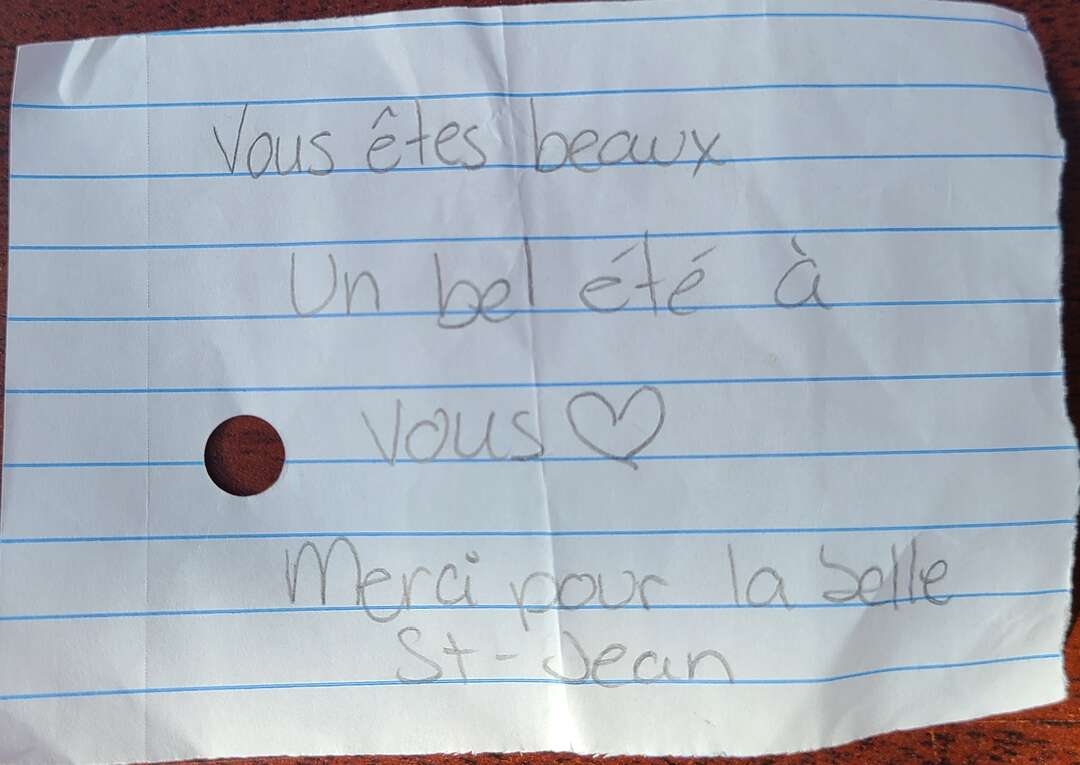 Vous êtes beaux
Un bel été à
vous ♡
Merci pour la belle
St-Jean